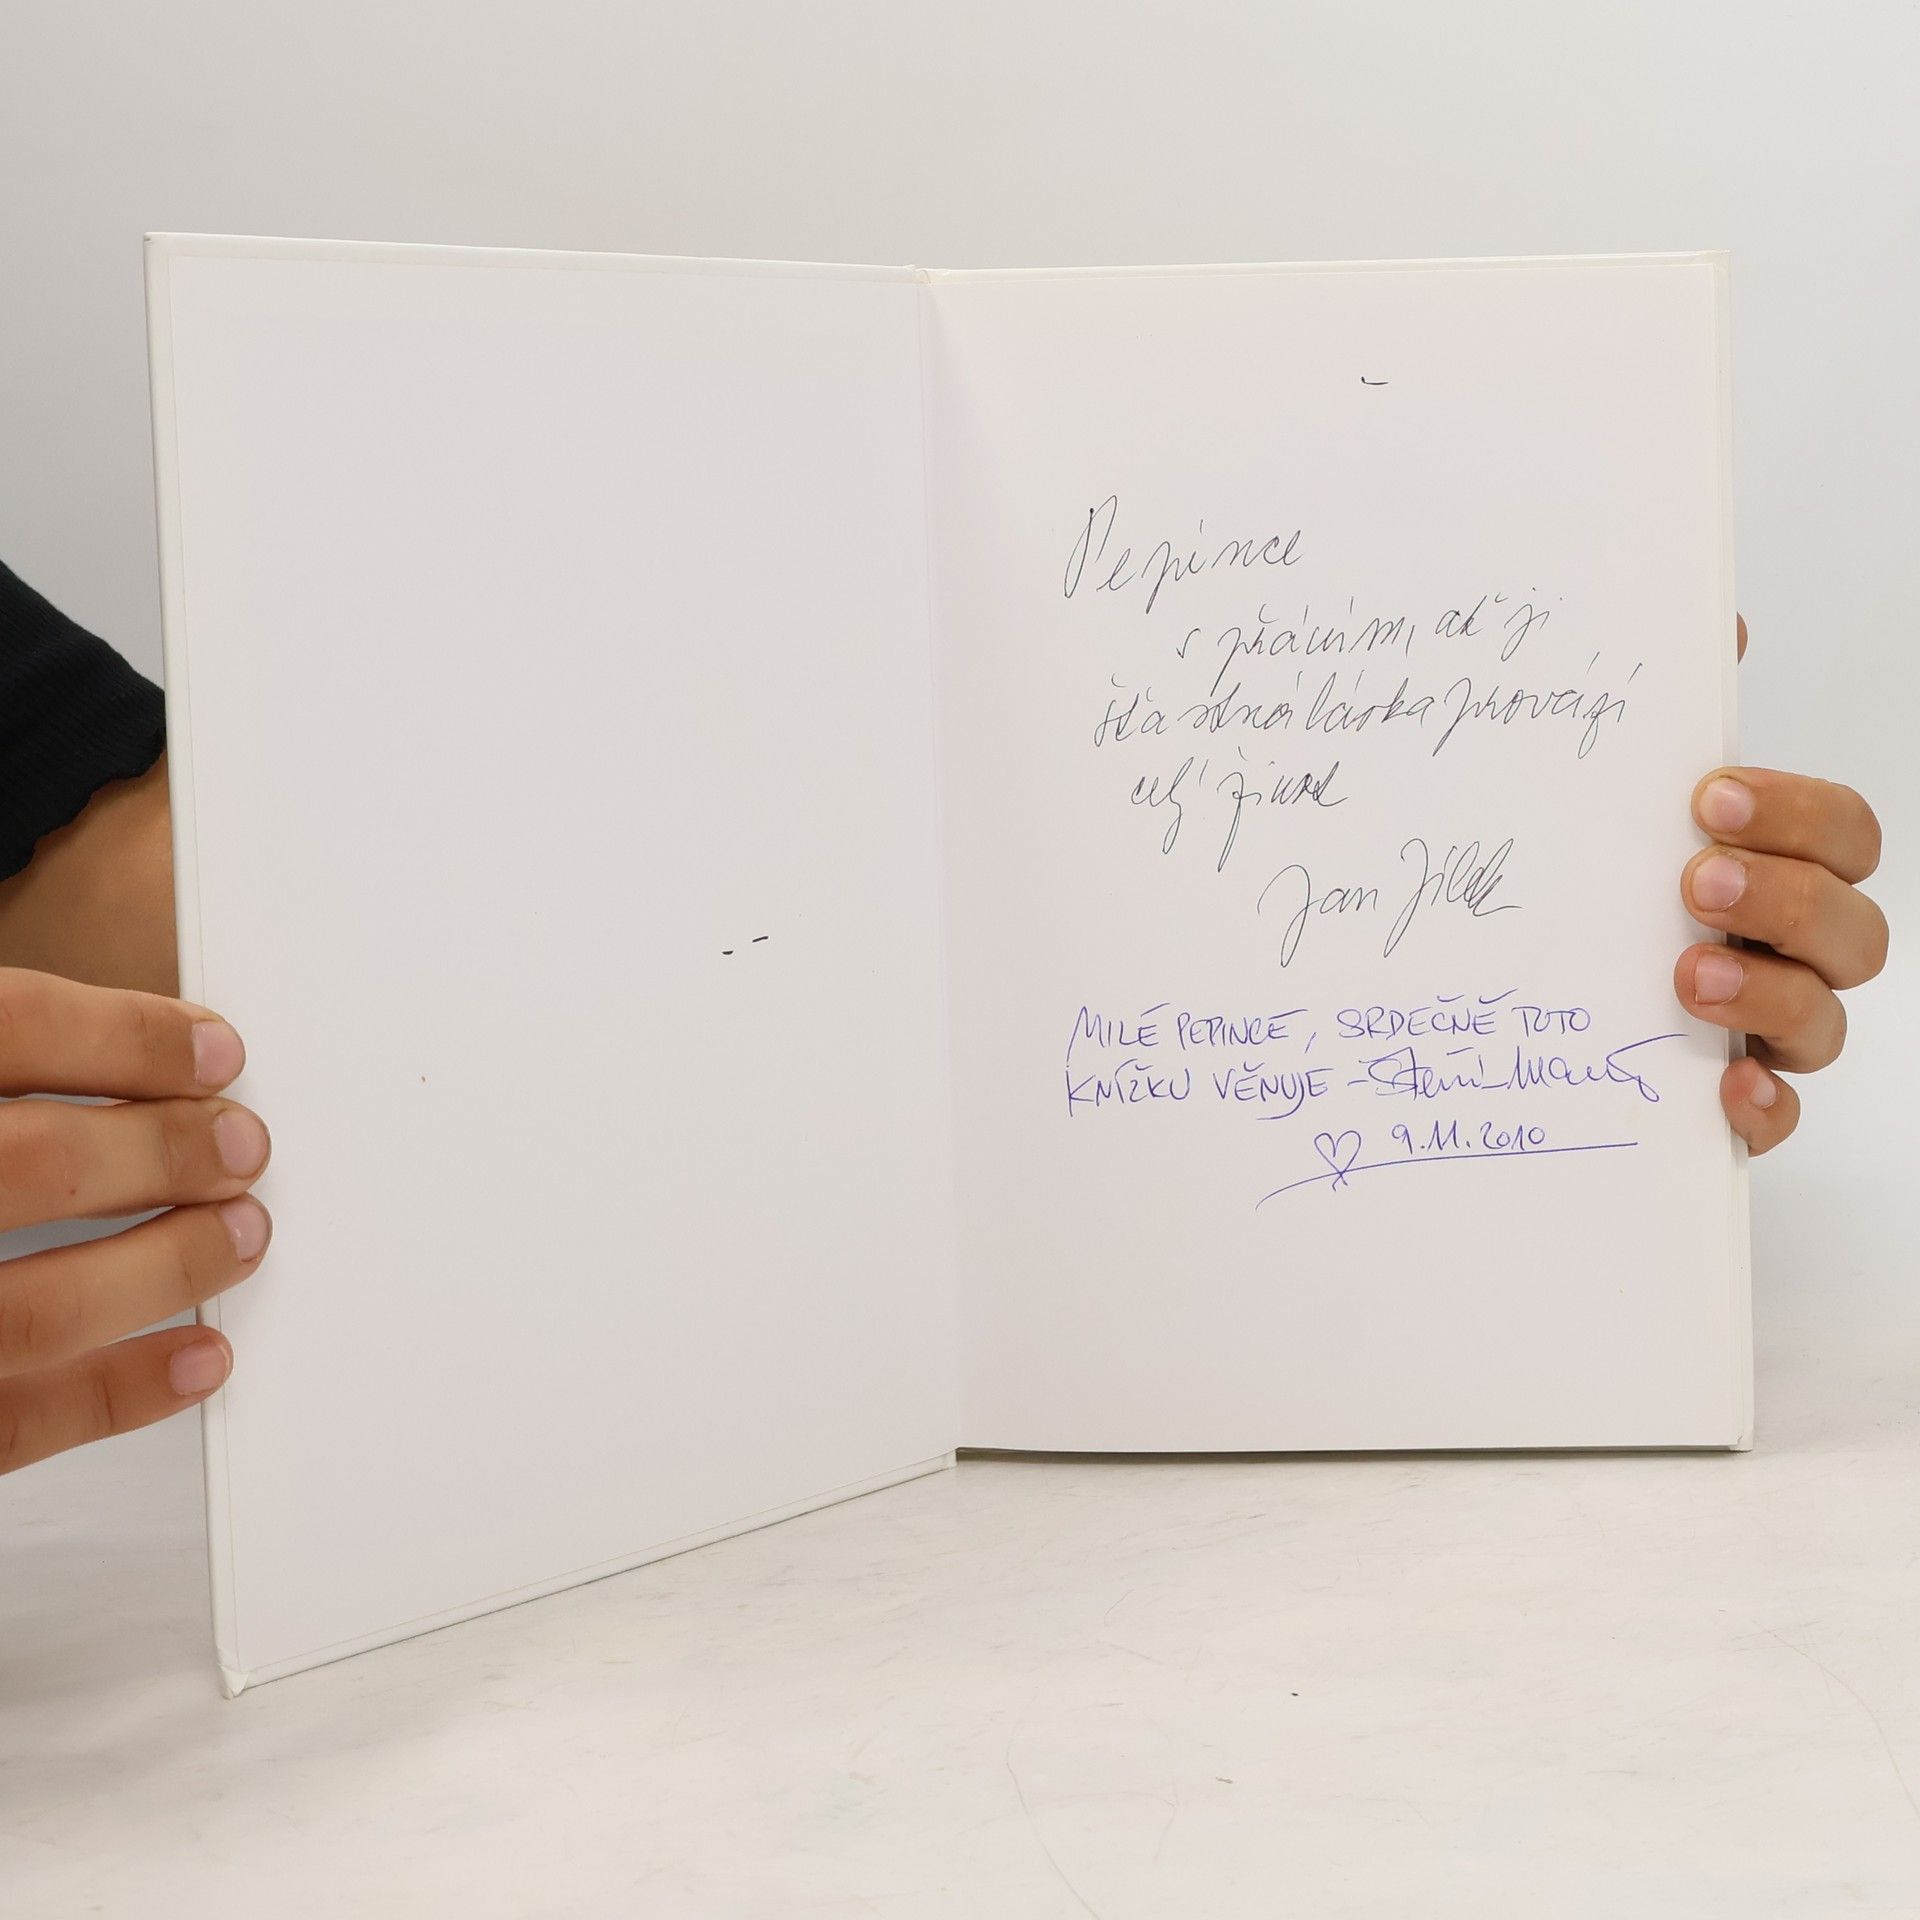 Pepince
s přáním, ať ji
šťastná láska provází
celý život
Jan Jílek
MILÉ PEPINCE, SRDEČNĚ TUTO
KNÍŽKU VĚNUJE –
9.11.2010